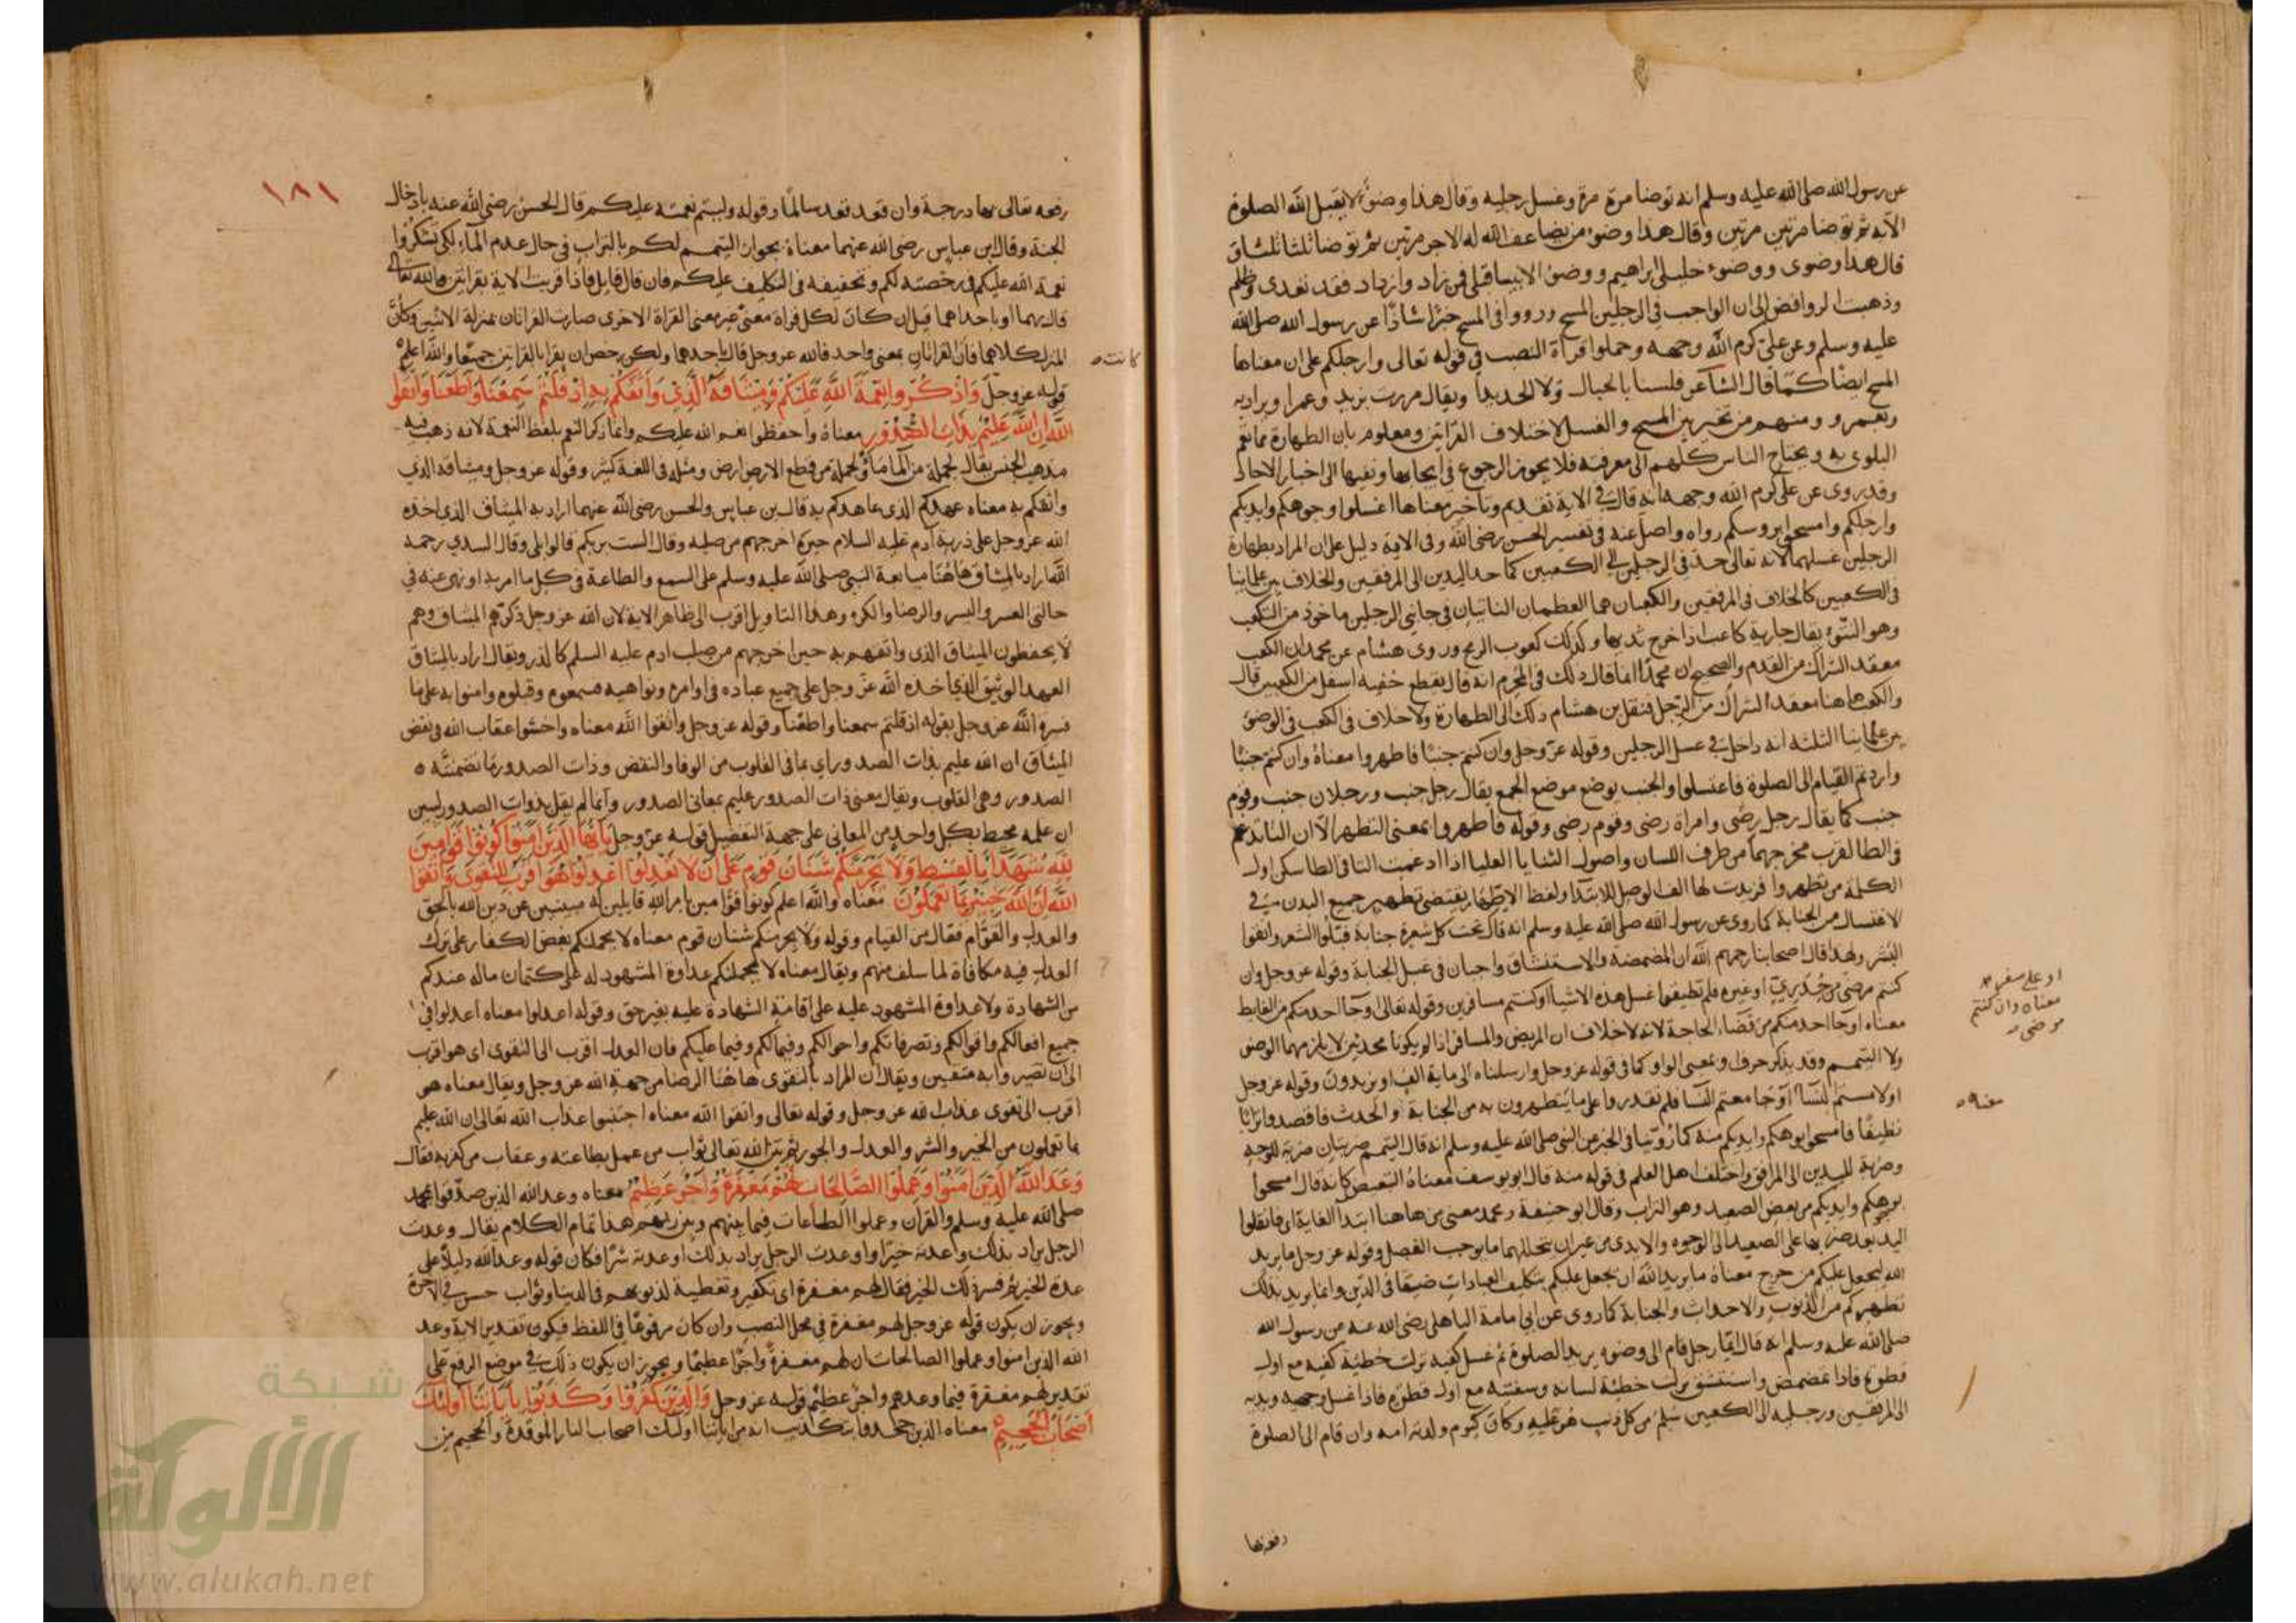 عن رسول الله صلى الله عليه وسلم انه توضا مرة مرة وغسل رجليه وقال هذا وضوء لا يقبل الله الصلوة
الا به ثم توضا مرتين مرتين وقال هذا وضوء من يضاعف الله له الاجر مرتين ثم توضا ثلثا ثلثا
قال هذا وضوى ووضوء خليلى ابراهيم ووضوء الانبيا قبلى فمن زاد وازداد فقد تعدى وظلم
وذهبت الروافض الى ان الواجب فى الرجلين المسح ورووا فى المسح خبرا شاذا عن رسول الله صلى الله
عليه وسلم وعن على كرم الله وجهه وحملوا قراة النصب فى قوله تعالى وارجلكم على ان معناها
المسح ايضا كما قال الشاعر فلسنا بالجبال ولا الحديدا ويقال مررت بزيد وعمرا ويراد به
وبعمرو ومنهم من تخير بين المسح والغسل لاختلاف القراتين ومعلوم بان الطهارة مما تعم
البلوى به ويحتاج الناس كلهم الى معرفته فلا يجوز الرجوع فى ايجابها ونفيها الى اخبار الاحاد
وقد روى عن على كرم الله وجهه انه قال فى الاية تقديم وتاخير معناها اغسلوا وجوهكم وايديكم
وارجلكم وامسحوا بروسكم رواه واصل عنه فى تفسير الحسن رضى الله وفى الاية دليل على ان المراد بطهارة
الرجلين غسلهما لانه تعالى حد فى الرجلين الى الكعبين كما حد اليدين الى المرفقين والخلاف بين علماينا
فى الكعبين كالخلاف فى المرفقين والكعبان هما العظمان الناتيان فى جانبى الرجلين ماخوذ من التكعب
وهو النتوء يقال جارية كاعب اذا خرج ثديها وكذلك كعوب الرمح وروى هشام عن محمد ان الكعب
معقد الشراك من القدم والصحيح ان محمدا انما قال ذلك فى المحرم انه قال يقطع خفيه اسفل من الكعبين قال
والكعب هاهنا معقد الشراك من الرجل فنقل بن هشام ذلك الى الطهارة ولا خلاف فى الكعب فى الوضوء
بين علماينا الثلثة انه داخل فى غسل الرجلين وقوله عز وجل وان كنتم جنبا فاطهروا معناه وان كنتم جنبا
واردتم القيام الى الصلوة فاغتسلوا والجنب يوضع موضع الجمع يقال رجل جنب ورجلان جنب وقوم
جنب كما يقال رجل رضى وامراة رضى وقوم رضى وقوله فاطهروا بمعنى التطهر الا ان التا تدغم
فى الطا لقرب مخرجهما من طرف اللسان واصول الثنايا العليا اذا ادغمت التا فى الطا سكن اول
الكلمة من تطهروا فزيدت لها الف الوصل للابتدا ولفظ الاطهار يقتضى تطهير جميع البدن فى
الاغتسال من الجنابة كما روى عن رسول الله صلى الله عليه وسلم انه قال تحت كل شعرة جنابة فبلوا الشعر وانقوا
البشر ولهذا قال اصحابنا رحمهم الله ان المضمضة والاستنشاق واجبان فى غسل الجنابة وقوله عز وجل وان
كنتم مرضى من جدرى او غيره فلم تطيقوا غسل هذه الاشيا او كنتم مسافرين وقوله تعالى او جا احد منكم من الغايط
معناه او جا احد منكم من قضاء الحاجة لانه لا خلاف ان المريض والمسافر اذا لم يكونا محدثين لا يلزمهما الوضو
ولا التيمم وقد يذكر حرف او بمعنى الواو كما فى قوله عز وجل وارسلناه الى ماية الف او يزيدون وقوله عز وجل
او لامستم النسا او جامعتم النسا فلم تقدروا على ما يتطهرون به من الجنابة والحدث فاقصدوا ترابا
نظيفا فامسحوا بوجوهكم وايديكم منه كما روينا فى الخبر عن النبى صلى الله عليه وسلم انه قال التيمم ضربتان ضربة للوجه
وضربة لليدين الى المرافق واختلف اهل العلم فى قوله منه قال ابو يوسف معناه التبعيض كانه قال امسحوا
بوجوهكم وايديكم من بعض الصعيد وهو التراب وقال ابو حنيفة ومحمد معنى من هاهنا ابتدا الغاية اى فانقلوا
اليد بعد ضربها على الصعيد الى الوجوه والايدى من غير ان يتخللهما ما يوجب الفصل وقوله عز وجل ما يريد
الله ليجعل عليكم من حرج معناه ما يريد الله ان يجعل عليكم بتكليف العبادات ضيقا فى الدين وانما يريد بذلك
تطهيركم من الذنوب والاحداث والجنابة كما روى عن ابى امامة الباهلى رضى الله عنه عن رسول الله
صلى الله عليه وسلم انه قال ايما رجل قام الى وضوه يريد الصلوة ثم غسل كفيه نزلت خطيئة كفيه مع اول
قطرة فاذا تمضمض واستنشق نزلت خطيئة لسانه وشفتيه مع اول قطرة فاذا غسل وجهه ويديه
الى المرفقين ورجليه الى الكعبين سلم من كل ذنب هو عليه وكان كيوم ولدته امه وان قام الى الصلوة
او على سفر
معناه وان كنتم
مرضى
معناه
رفعه بها
١٨١
رفعه تعالى بها درجة وان قعد قعد سالما وقوله وليتم نعمته عليكم قال الحسن رضى الله عنه بادخال
الجنة وقال ابن عباس رضى الله عنهما معناه بجواز التيمم لكم بالتراب فى حال عدم الماء لكى تشكروا
نعمة الله عليكم فى رخصته لكم وتخفيفه فى التكليف عليكم فان قال قايل فاذا قريت الاية بقراتين فالله تعالى
قال بهما او باحداهما قيل ان كان لكل قراة معنى غير معنى القراة الاخرى صارت القراتان بمنزلة الاثنين وكان
المنزل كلاهما فان القراتان بمعنى واحد فالله عز وجل قال باحدهما ولكن رخص ان يقرا بالقراتين جميعا والله اعلم
كانت
قوله عز وجل واذكروا نعمة الله عليكم وميثاقه الذى واثقكم به اذ قلتم سمعنا واطعنا واتقوا
الله ان الله عليم بذات الصدور معناه واحفظوا نعم الله عليكم وانما ذكر النعم بلفظ النعمة لانه ذهب فيه
مذهب الجنس يقال لجملة من الما ما ولجملة من قطع الارض ارض ومثله فى اللغة كثير وقوله عز وجل وميثاقه الذى
واثقكم به معناه عهدكم الذى عاهدكم به قال بن عباس والحسن رضى الله عنهما اراد به الميثاق الذى اخذه
الله عز وجل على ذرية آدم عليه السلام حين اخرجهم من صلبه وقال الست بربكم قالوا بلى وقال السدي رحمه
الله اراد بالميثاق هاهنا مبايعة النبى صلى الله عليه وسلم على السمع والطاعة فى كل ما امر به او نهى عنه فى
حالتى العسر واليسر والرضا والكره وهذا التاويل اقرب الى ظاهر الاية لان الله عز وجل ذكرهم الميثاق وهم
لا يحفظون الميثاق الذى واثقهم به حين اخرجهم من صلب ادم عليه السلم كالذر ويقال اراد بالميثاق
العهد الوثيق الذى اخذه الله عز وجل على جميع عباده فى اوامره ونواهيه فسمعوه وقبلوه وامنوا به على ما
فسره الله عز وجل بقوله اذ قلتم سمعنا واطعنا وقوله عز وجل واتقوا الله معناه واخشوا عقاب الله فى نقض
الميثاق ان الله عليم بذات الصدور اى بما فى القلوب من الوفا والنقض وذات الصدور ما تضمنته
الصدور وهى القلوب ويقال معنى ذات الصدور عليم بمعانى الصدور وانما لم يقل بذوات الصدور ليبين
ان علمه محيط بكل واحد من المعانى على جهة التفصيل قوله عز وجل يايها الذين امنوا كونوا قوامين
لله شهدا بالقسط ولا يجرمنكم شنان قوم على ان لا تعدلوا اعدلوا هو اقرب للتقوى واتقوا
الله ان الله خبير بما تعملون معناه والله اعلم كونوا قوامين بامر الله قايلين له مبينين عن دين الله بالحق
والعدل والقوام فعال من القيام وقوله ولا يجرمنكم شنان قوم معناه لا يحملنكم بغض الكفار على ترك
العدل فيه مكافاة لما سلف منهم ويقال معناه لا يحملنكم عداوة المشهود له على كتمان ماله عندكم
من الشهادة ولا عداوة المشهود عليه على اقامة الشهادة عليه بغير حق وقوله اعدلوا معناه اعدلوا فى
جميع افعالكم واقوالكم وتصرفاتكم واحوالكم وفيما لكم وفيما عليكم فان العدل اقرب الى التقوى اى هو اقرب
الى ان تصيروا به متقين ويقال ان المراد بالتقوى هاهنا الرضا من جهة الله عز وجل ويقال معناه هو
اقرب الى تقوى عذاب الله عز وجل وقوله تعالى واتقوا الله معناه اجتنبوا عذاب الله تعالى ان الله عليم
بما تعملون من الخير والشر والعدل والجور ثم بين الله تعالى ثواب من عمل بطاعته وعقاب من كفر به فقال
وعد الله الذين امنوا وعملوا الصالحات لهم مغفرة واجر عظيم معناه وعد الله الذين صدقوا بمحمد
صلى الله عليه وسلم والقران وعملوا الطاعات فيما بينهم وبين ربهم هذا تمام الكلام يقال وعدت
الرجل يراد بذلك واعدته خيرا واوعدت الرجل يراد بذلك اوعدته شرا فكان قوله وعد الله دليلا على
عدة الخير ثم فسر ذلك الخير فقال لهم مغفرة اى تكفير وتغطية لذنوبهم فى الدنيا وثواب حسن فى الاخرة
ويجوز ان يكون قوله عز وجل لهم مغفرة فى محل النصب وان كان مرفوعا فى اللفظ فيكون تقدير الاية وعد
الله الذين امنوا وعملوا الصالحات ان لهم مغفرة واجرا عظيما ويجوز ان يكون ذلك فى موضع الرفع على
تقدير لهم مغفرة فيما وعدهم واجر عظيم قوله عز وجل والذين كفروا وكذبوا باياتنا اولئك
اصحاب الجحيم معناه الذين جحدوا بتكذيب انه من اياتنا اولئك اصحاب النار الموقدة والجحيم من
شبكة
الألوكة
www.alukah.net